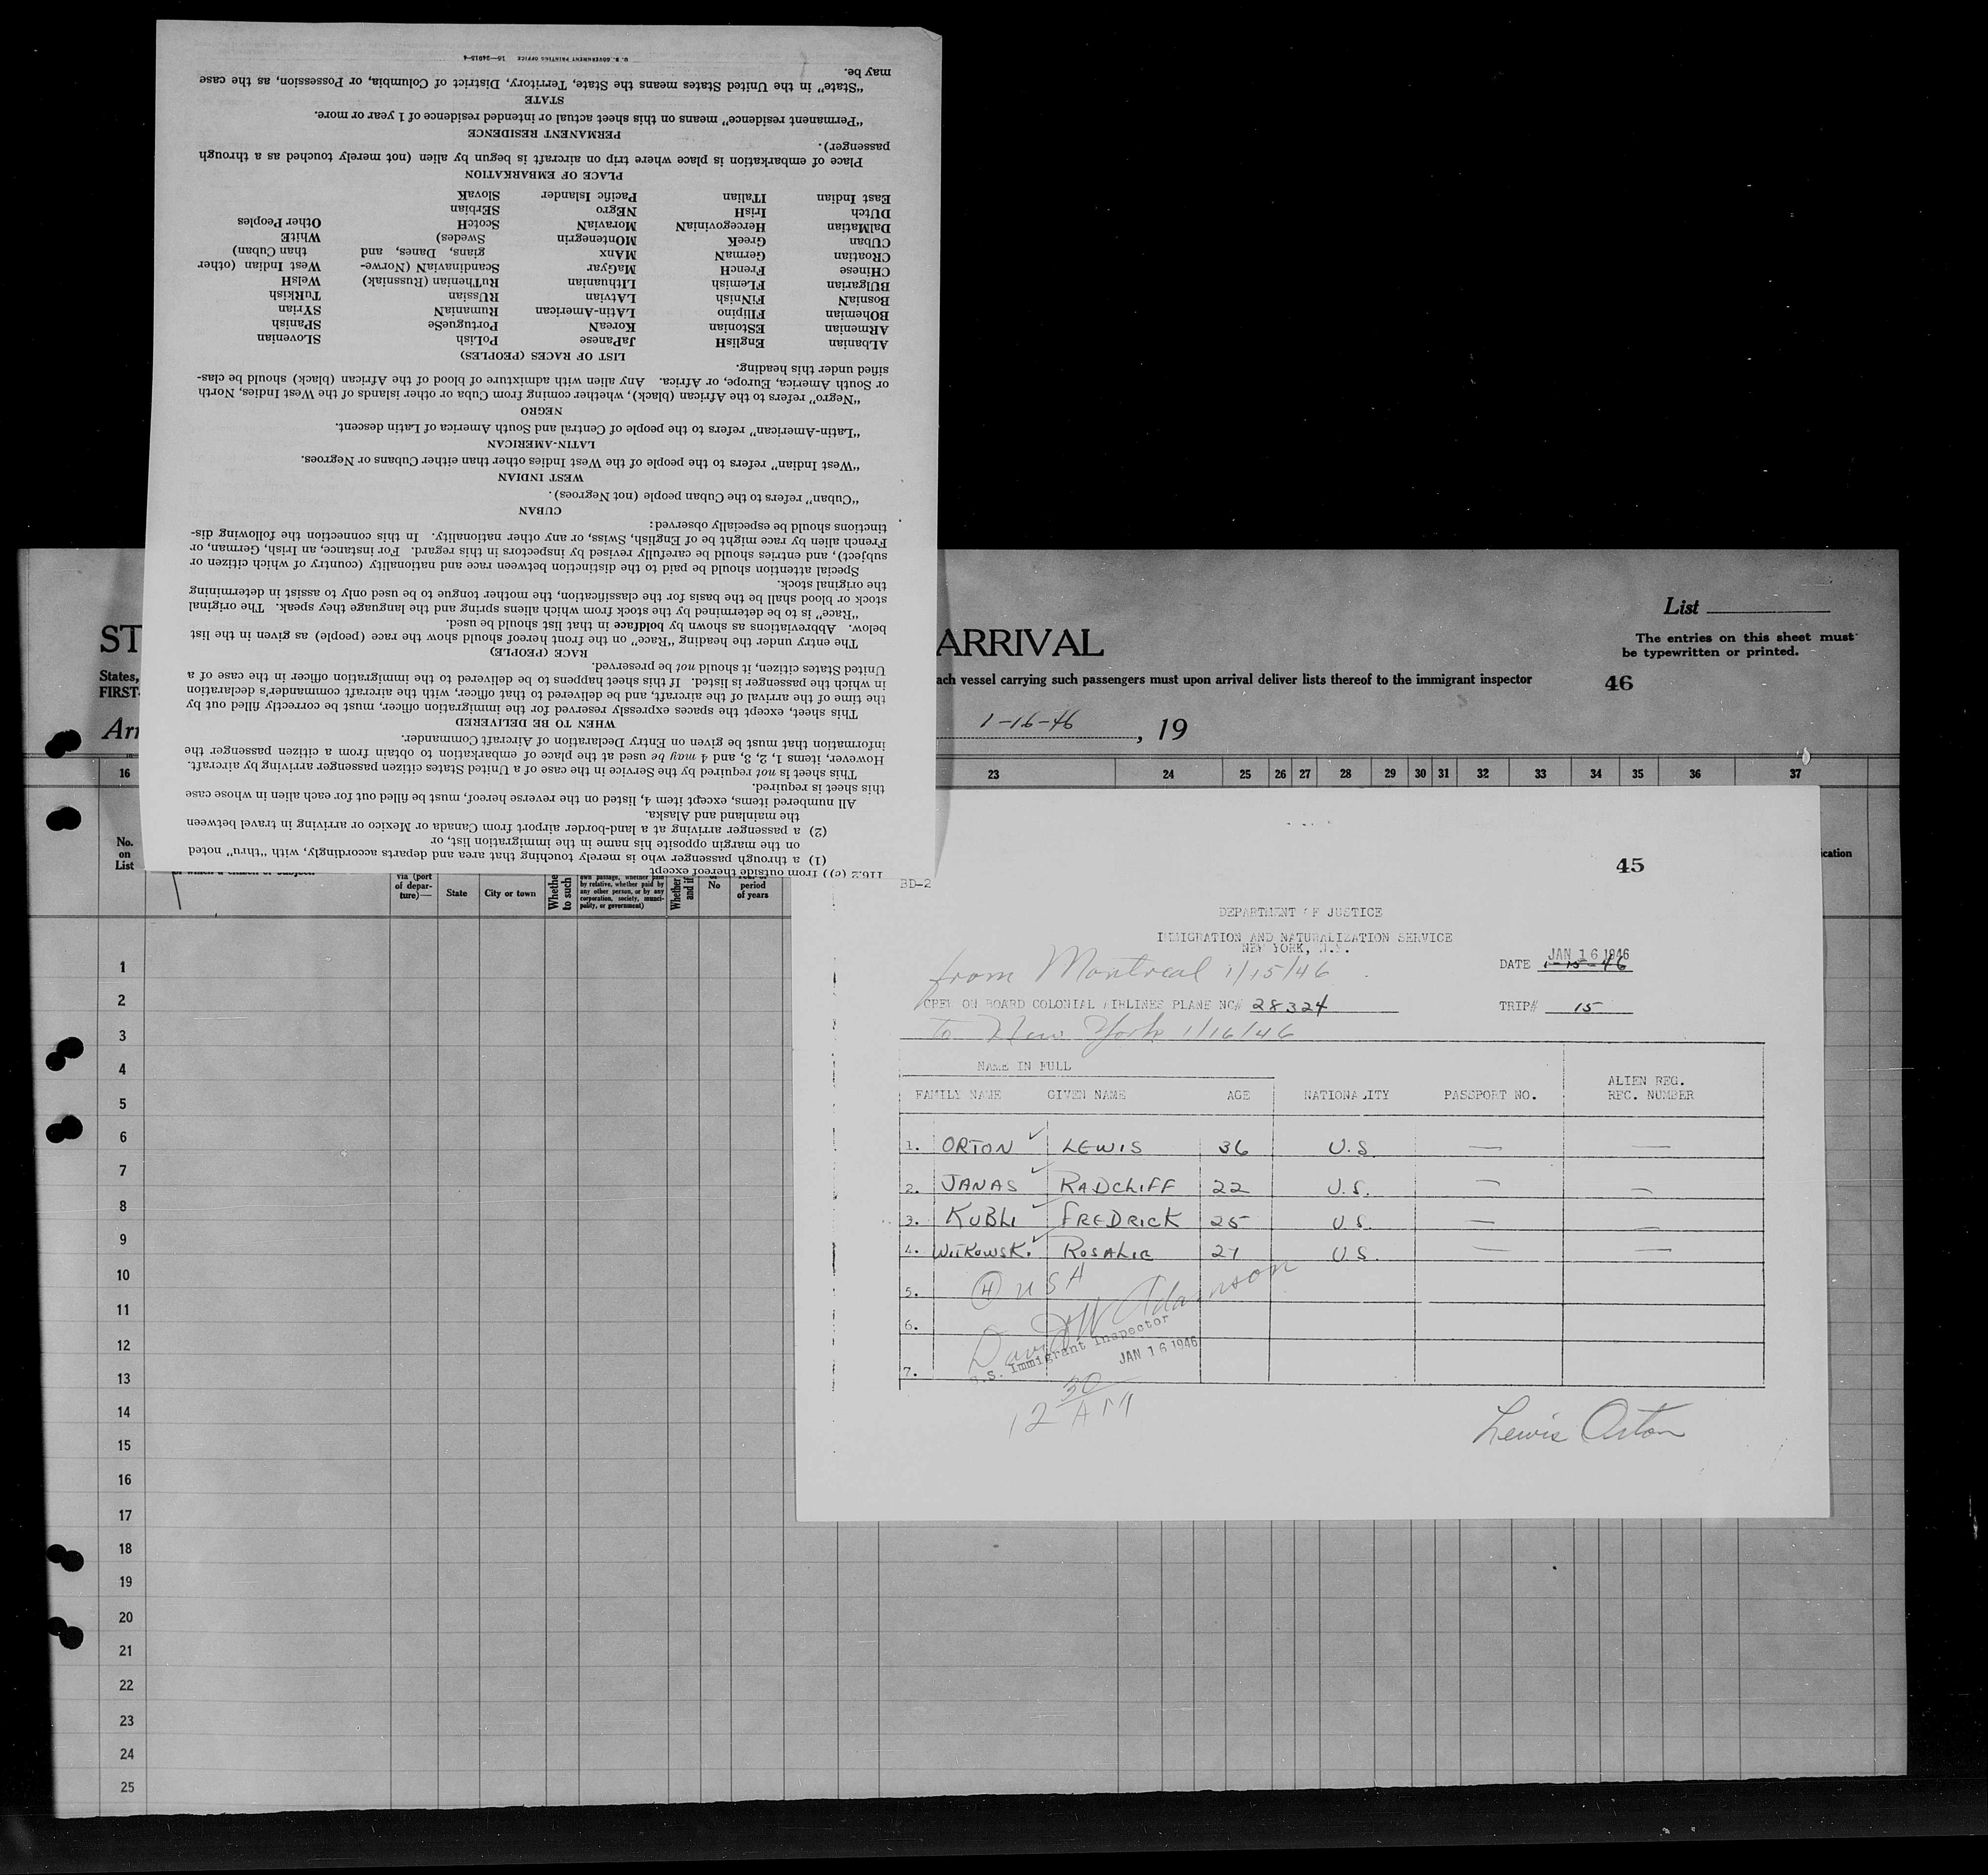 116.2 (c)) from outside thereof except
(1) a through passenger who is merely touching that area and departs accordingly, with "thru" noted
on the margin opposite his name in the immigration list, or
(2) a passenger arriving at a land-border airport from Canada or Mexico or arriving in travel between
the mainland and Alaska.
All numbered items, except item 4, listed on the reverse hereof, must be filled out for each alien in whose case
this sheet is required.
This sheet is not required by the Service in the case of a United States citizen passenger arriving by aircraft.
However, items 1, 2, 3, and 4 may be used at the place of embarkation to obtain from a citizen passenger the
information that must be given on Entry Declaration of Aircraft Commander.
WHEN TO BE DELIVERED
This sheet, except the spaces expressly reserved for the immigration officer, must be correctly filled out by
the time of the arrival of the aircraft, and be delivered to that officer, with the aircraft commander's declaration
in which the passenger is listed. If this sheet happens to be delivered to the immigration officer in the case of a
United States citizen, it should not be preserved.
RACE (PEOPLE)
The entry under the heading "Race" on the front hereof should show the race (people) as given in the list
below. Abbreviations as shown by boldface in that list should be used.
"Race" is to be determined by the stock from which aliens spring and the language they speak. The original
stock or blood shall be the basis for the classification, the mother tongue to be used only to assist in determining
the original stock.
Special attention should be paid to the distinction between race and nationality (country of which citizen or
subject), and entries should be carefully revised by inspectors in this regard. For instance, an Irish, German, or
French alien by race might be of English, Swiss, or any other nationality. In this connection the following dis-
tinctions should be especially observed:
CUBAN
"Cuban" refers to the Cuban people (not Negroes).
WEST INDIAN
"West Indian" refers to the people of the West Indies other than either Cubans or Negroes.
LATIN-AMERICAN
"Latin-American" refers to the people of Central and South America of Latin descent.
NEGRO
"Negro" refers to the African (black), whether coming from Cuba or other islands of the West Indies, North
or South America, Europe, or Africa. Any alien with admixture of blood of the African (black) should be clas-
sified under this heading.
LIST OF RACES (PEOPLES)
ALbanian EnglisH JaPanese PoLish SLovenian
ARmenian EStonian KoreaN PortugueSe SPanish
BOhemian FIlipino LAtin-American RumaniaN SYrian
BosniaN FiNnish LAtvian RUssian TuRkish
BUlgarian FLemish LIthuanian RuThenian (Russniak) WelsH
CHinese FrencH MaGyar ScandinaviaN (Norwe- West Indian (other
CRoatian GermaN MAnx gians, Danes, and than Cuban)
CUban GreeK MOntenegrin Swedes) WhitE
DalMatian HercegoviniaN MoraviaN ScotcH Other Peoples
DUtch IrisH NEgro SErbian
East Indian ITalian Pacific Islander SlovaK
PLACE OF EMBARKATION
Place of embarkation is place where trip on aircraft is begun by alien (not merely touched as a through
passenger).
PERMANENT RESIDENCE
"Permanent residence" means on this sheet actual or intended residence of 1 year or more.
STATE
"State" in the United States means the State, Territory, District of Columbia, or Possession, as the case
may be.
U. S. GOVERNMENT PRINTING OFFICE 16—24015-4
List
ST ARRIVAL
The entries on this sheet must
be typewritten or printed.
States, ach vessel carrying such passengers must upon arrival deliver lists thereof to the immigrant inspector
FIRST- 46
Arr 1-16-46, 19
16 23 24 25 26 27 28 29 30 31 32 33 34 35 36 37
No.
on
List
ication
via (port
of depar-
ture)—
State
City or town
Whethe
to such
own passage, whether paid
by relative, whether paid by
any other person, or by any
corporation, society, munici-
pality, or government)
Whether
and if
No
period
of years
1
2
3
4
5
6
7
8
9
10
11
12
13
14
15
16
17
18
19
20
21
22
23
24
25
45
BD-2
DEPARTMENT OF JUSTICE
IMMIGRATION AND NATURALIZATION SERVICE
NEW YORK, N.Y.
JAN 16 1946
from Montreal 1/15/46
DATE 1-15-46
CREW ON BOARD COLONIAL AIRLINES PLANE NO# 28324 TRIP# 15
to New York 1/16/46
NAME IN FULL
FAMILY NAME GIVEN NAME AGE NATIONALITY PASSPORT NO. ALIEN REG.
REC. NUMBER
1. ORTON ✓ LEWIS 36 U.S. — —
2. JANAS ✓ RADCLIFF 22 U.S. — —
3. KUBLI ✓ FREDRICK 25 U.S. — —
4. WITKOWSKI ✓ ROSALIE 27 U.S. — —
5.
(4) USA
6.
David W Adamson
U.S. Immigrant Inspector
JAN 16 1946
7.
12 30 AM
Lewis Orton